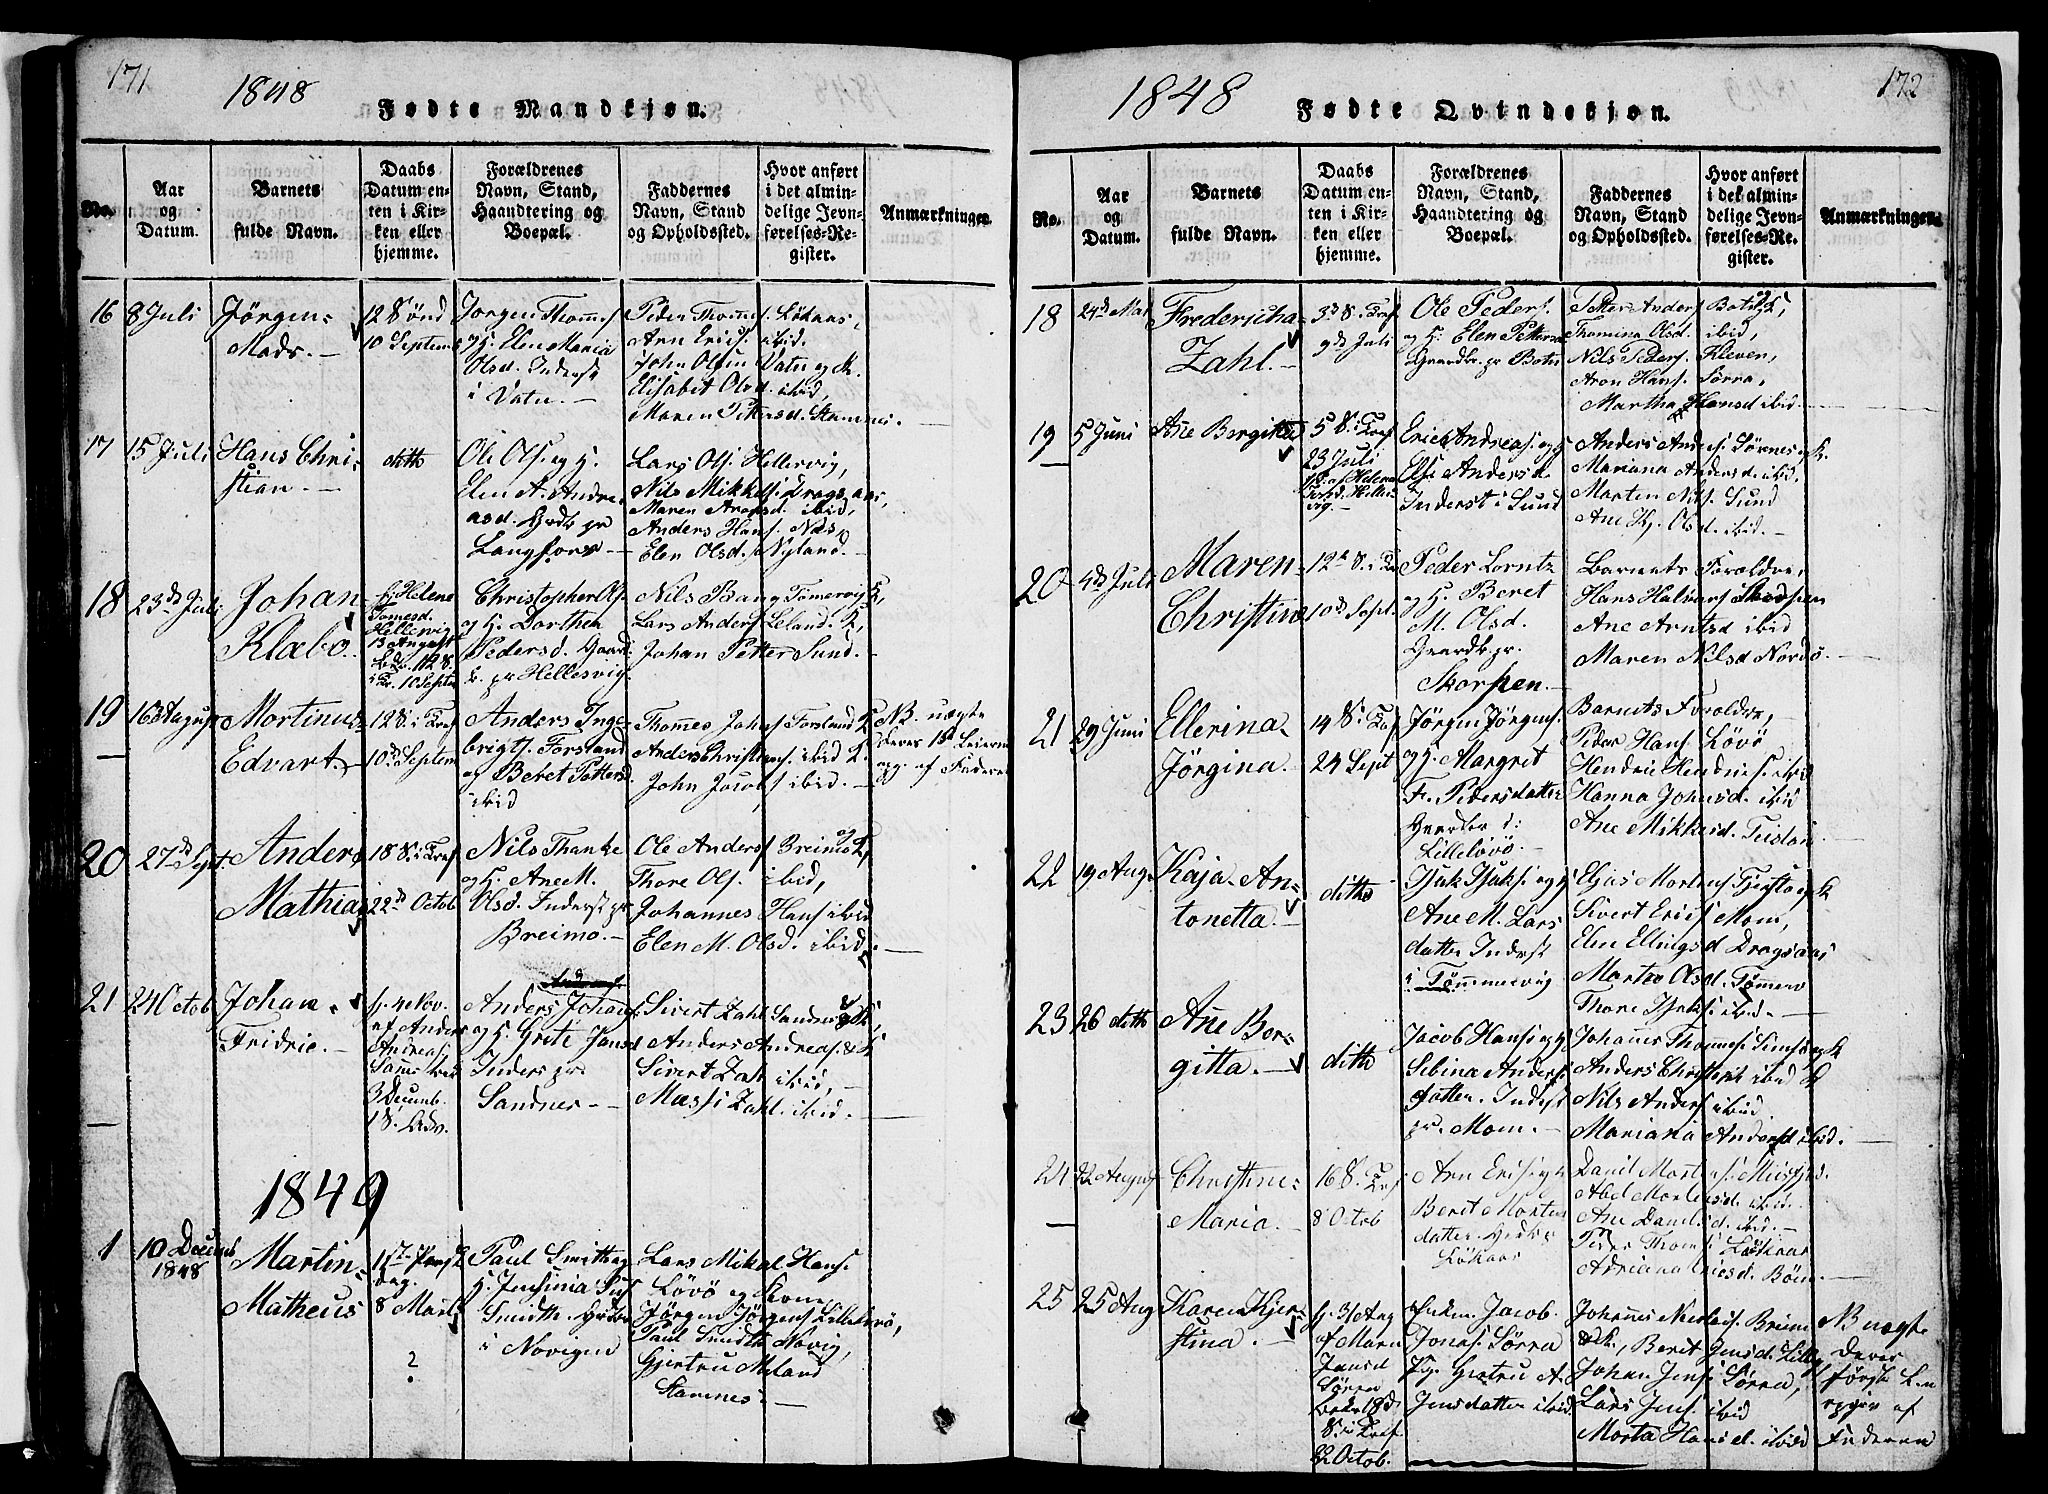 171
1848
Fødte Mandkjøn.
No.
Aar og Datum.
Barnets fulde Navn.
Daabs Datum enten i Kirken eller hjemme.
Forældrenes Navn, Stand, Haandtering og Boepæl.
Faddernes Navn, Stand og Opholdssted.
Hvor anført i det almindelige Jevnførelses-Register.
Anmærkninger.
16
8 Juli
Jörgen
Mads. -
12 Sönd
10 Septem
Jorgen Thoms
og H. Elen Maria
Olsd. Inderst
i Vatn. -
Peder Thoms. Lökaas,
Arn Erics. ibid.
John Olsen Vatn og K.
Elisabet Olsd. ibid,
Maren Pettersd. Stamnes. -
17
15 Juli
Hans Chri-
stian. -
ditto
Ole Ols. og H.
Elen A. Andre-
asd. Grdb. pr
Langfors -
Lars Ols. Hellesvig,
Nils Mikkels. Dragsaas,
Maren Aronsd. ibid,
Anders Hans. Næs,
Elen Olsd. Nyland. -
18
23de Juli
Johan
Klæbo.
hj. Helene
Tomesd.
Hellesvig
August
12 S.
i Kr. 10 Septbr
Christopher Ols.
og H. Dorthea
Pedersd. Gaard-
b. pr Hellesvig.
Nils Bang Tömervig K,
Lars Anders. Leland. K,
Johan Petter Sund. -
19
16 August
Mortinus
Edvart. -
12 S. i Tref
10de Septem
Anders Inge-
brigts. Forsland
og Beret Petters
ibid
Thomes Johns. Forsland K
Anders Christians. ibid K.
John Jacobs. ibid. -
NB. uægte
deres 1ste Leierm
opg. af Faderen
20
27de Sept.
Anders
Mathias
18 S. i Tref
22de Octob
Nils Thanke
og H. Ane M.
Olsd. Inderst pr
Breimo. -
Ole Anders. Breimo og K,
Thore Ols. ibid,
Johannes Hans. ibid
Elen M. Olsd. ibid. -
21
24 Octob
Johan
Fridric. -
hj. 4 Nov.
af Anders
Andreas.
3 Decemb.
1 S. Adv.
Anders Johans.
og H. Grete Jansd
Inders pr
Sandnes -
Sivert Zahl Sandnes & K,
Anders Andreas. & K
Sivert Zahl ibid,
Massi Zahl. ibid. -
1849
1
10 Decemb
1848
Martin
Matheus
1ste Paaske
dag.
8 Marts
?
Paul Smith og
H. Jensinia
Smidth. Grdbr
i Novigen
Lars Mikal Hans.
Lövö og Kone,
Jörgen Jörgens. Lillelövö,
Paul Smidth Novig,
Gjertru Meland
Stamnes. -
172
1848
Fødte Qvindekjøn.
No.
Aar og Datum.
Barnets fulde Navn.
Daabs Datum enten i Kirken eller hjemme.
Forældrenes Navn, Stand, Haandtering og Boepæl.
Faddernes Navn, Stand og Opholdssted.
Hvor anført i det almindelige Jevnførelses-Register.
Anmærkninger.
18
24de Mai
Fredericha
Zahl. -
3de S. Tref
9de Juli
Ole Peders.
og H. Elen Pettersd
Gaardb. pr Botn
Petter Anders. Botn & K,
Thomina Olsd. ibid.
Nils Peders. Kleven,
Aron Hans. Sörra,
Martha Hansd ibid. -
19
5 Juni
Ane Bergitta
5 S. i Tref
23 Juli
Eric Andreas. og H
Else Andersd.
Inderst i Sund
Anders Anders. Sörnes og K.
Mariana Andersd. ibid.
Marten Nils. Sund
Ane Kj. Olsd. ibid. -
20
4de Juli
Maren
Christine
12te S. i Tr
10de Sept.
Peder Lorntz
og H. Beret
M. Olsd.
Gaardb. pr.
Skorpen. -
Barnets Foroldre,
Hans Halvors. Skorpen
Ane Arntsd ibid
Maren Nilsd Nordö. -
21
29 Juni
Ellerina
Jörgina. -
14 S. i Tref
24 Sept
Jörgen Jörgens.
og H. Margret
F. Pedersdatter
Gaardbr i:
Lillelövö. -
Barnets Foroldre,
Peder Hans. Lövö
Hendric Hendrics. ibid
Hanna Johnsd. ibid
Ane Mikkelsd.
22
19 Aug.
Kaja An-
tonetta. -
ditto
Isak Isaks. og H
Ane M. Lars
datter Inderst
i Tømmervig
Elias Mortens. Fjersta og K
Sivert Erics. Mom,
Elen Ellingsd Dragsaas
Martea Olsd. Tömerv
Thore Isaks. ibid. -
23
26 ditto
Ane Ber-
gitta. -
ditto
Jacob Hans. og H
Sebina Anders
datter. Inderst
pr. Mom. -
Johanes Thomes. Simsö og K
Anders Christens. ibid K
Nils Anders. ibid.
Mariana Andersd ibid. -
24
22 August
Christine
Maria. -
16 S. Tref
8 Octob
Arn Erics. og H
Beret Mortens
datter Grdbr.
Lökaas
Danil Mortens.
Abel Mortensd. ibid.
Ane Danilsd. ibid. -
Peder Thoms. Lökaas
Adriana Ericsd. Böm. -
25
25 Aug
Karen Kjer-
stina. -
hj. 31 Aug
af Maren
Jansd
Sörra
18de
S. i Tref
22 Octob.
Enkem. Jacob
Jonas. Sörra
Pig. Gjertru A.
Jensdatter ibid.
Johannes Nicolais. Breimo
& K, Beret Jensd. Lilley
Johan Jens. Sörra,
Lars Jens. ibid
Marta Hansd. ibid
NB uægte
Deres
første L.m
opgiv af
Faderen